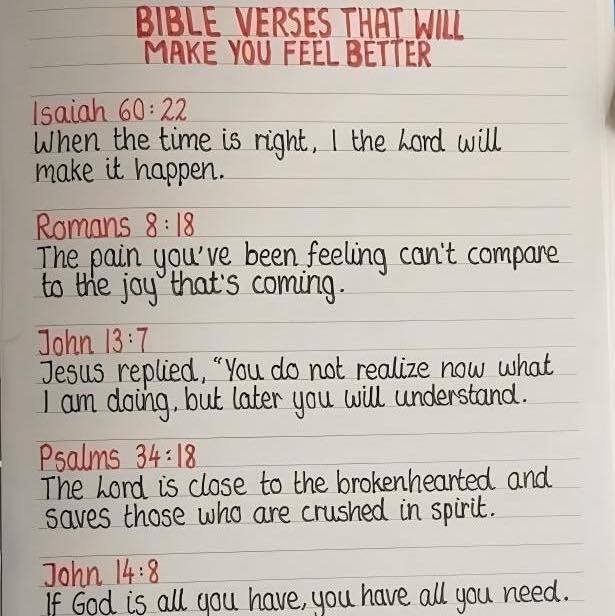 BIBLE VERSES THAT WILL
MAKE YOU FEEL BETTER
Isaiah 60:22
When the time is right, I the Lord will
make it happen.
Romans 8:18
The pain you've been feeling can't compare
to the joy that's coming.
John 13:7
Jesus replied, “You do not realize now what
I am doing, but later you will understand.
Psalms 34:18
The Lord is close to the brokenhearted and
saves those who are crushed in spirit.
John 14:8
If God is all you have, you have all you need.